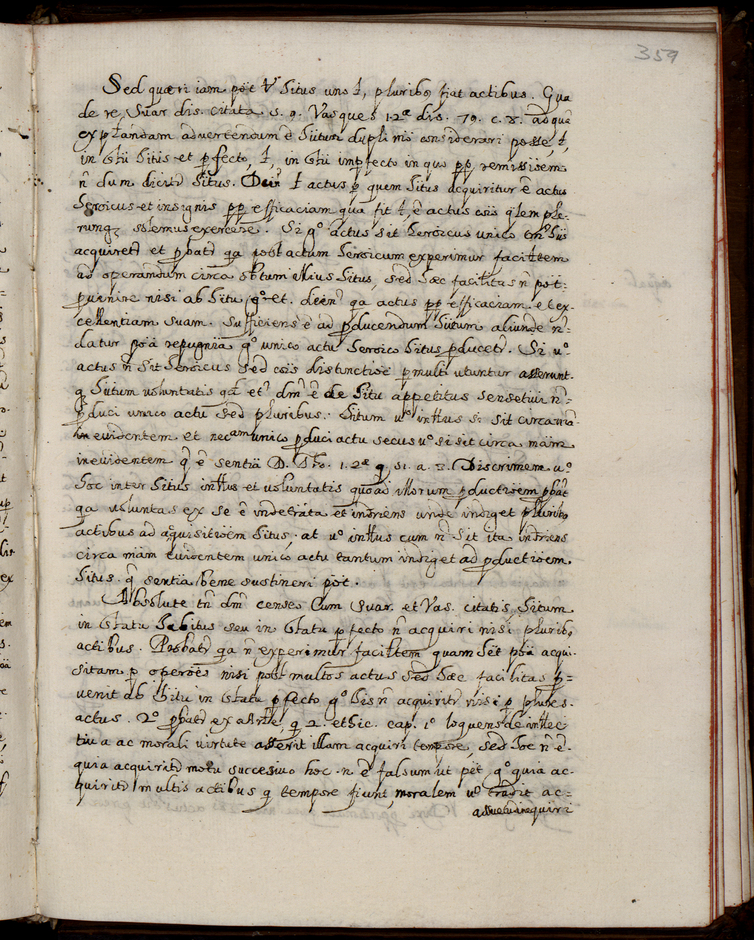 359
Sed quæri iam põt Vr̃ Situs uno ł, pluribꝰ fiat actibus. Qua
de re Suar dis. citata s. 9. Vasques 1.2æ dis. 79. c. 8. ad quæ
explãndam advertendum ẽ Sitũm duplr̃ considerari posse, ł,
in statu Sitûs et ꝑfecto, ł, in statu imꝑfecto in quo ꝑꝑ remissiõem
ñ dum dicitr̃ Situs. Dein ł actus ꝑ quem Situs acquiritur ẽ actus
Seroicus et insignis ꝑꝑ efficaciam qua fit ł, ẽ actus cõis qãlem ple-
rumqꝫ solemus exercere. Si gº actus sit Seroicus unico tm̃
acquiretr̃ et ꝓbatr̃ qa post actum Seroicum experimur facilitem
ad operandum circa obtum illius Situs, sed Sæc facilitas ñ põt
ꝓvenire nisi ab Situ gº et. deinr̃ qa actus ꝑꝑ efficaciam et ex-
cellentiam suam. Sufficiens ẽ ad ꝓducendum Sitũm aliunde ñ
datur põa repugñia gº unico actu Seroico Situs ꝓducetr̃. Si uº
actus ñ sit Seroicus sed cõis distinctiõe ꝑmulti utuntur asserunt.
q Sitũm voluntatis qd̃ etr̃ dm̃ ẽ de Situ appetitus sensetivi ñ
ꝓduci unico actu sed pluribus. Situm uº intllus si sit circa mãm
in evidentem et necam unico ꝓduci actu secus uº si sit circa mãm
inevidentem q̃ ẽ sentiã D. Tho. 1.2æ q. 51. a. 3. Discrimem uº
Soc inter Situs intllus et voluntatis quoad illorum ꝓductiõem ꝓbat
qa voluntas ex se ẽ indetrãta et indifrens unde indiget pluribꝰ
actibus ad aquisitiõem Situs. at uº intllus cum ñ sit ita indifrens
circa mãm evidentem unico actu tantum indiget ad ꝓductiõem
Situs. q̃ sentia bene sustineri põt.
Absolute tñ dm̃ censeo Cum Suar. et Vas. citatis Sitũm
in statu Sabitus seu in statu ꝑfecto ñ acquiri nisi pluribꝰ
actibus. Probatr̃ qa ñ experimur facilitem quam Sẽt põa acqui-
sitam ꝑ operões nisi post multos actus sed Sæc facilitas ꝓ-
venit ab Situ in statu ꝑfecto gº Sis ñ acquiritr̃ nisi ꝑ plures
actus. 2º ꝓbatr̃ ex aristle q 2. ethic. cap. 1º loquens de intllec
tiva ac morali virtute asserit illam acquiri tempore, sed Soc ñ ẽ
quia acquiritr̃ motu succesivo hoc .n. ẽ falsum ut pet gº quia ac-
quiritr̃ multis actibus q̃ tempore fiunt, moralem uº tradit ac-
assuetud. acquiri